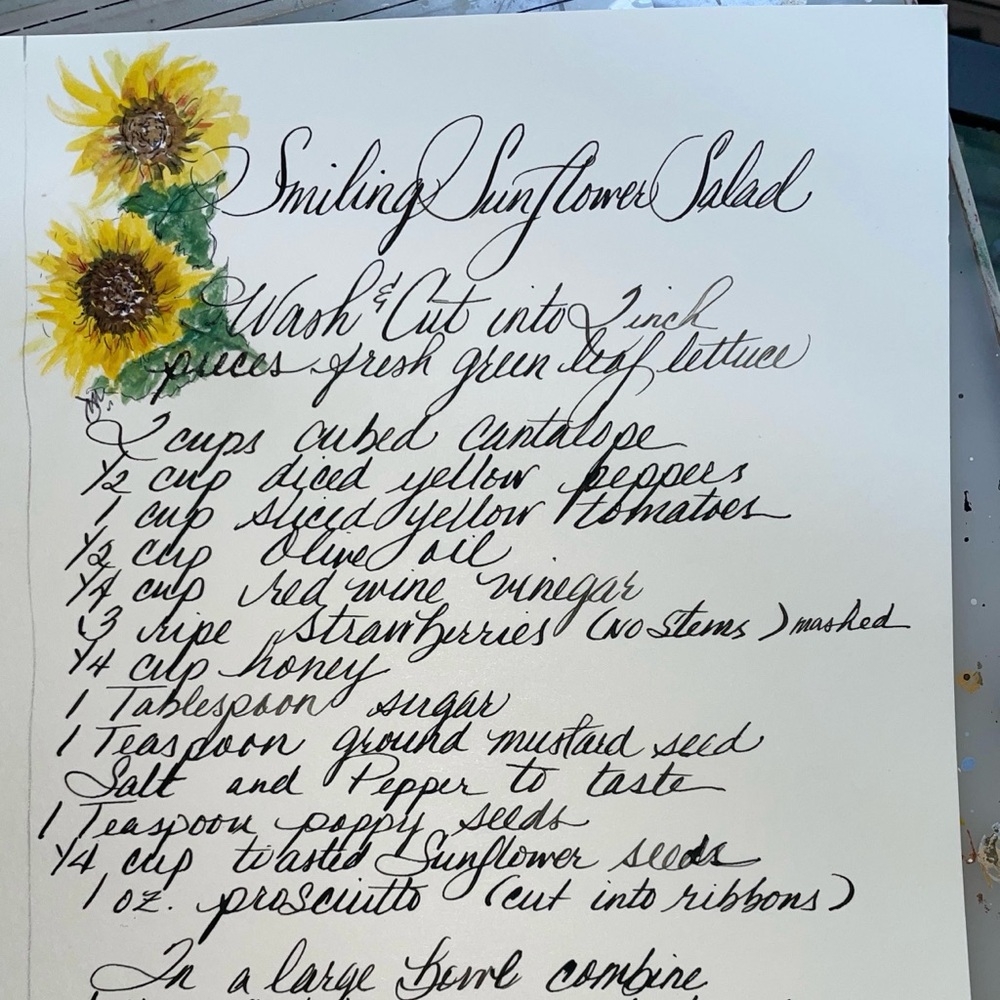 Smiling Sunflower Salad
Wash & Cut into 2 inch
pieces fresh green leaf lettuce
2 cups cubed cantalope
1/2 cup diced yellow peppers
1 cup sliced yellow tomatoes
1/2 cup Olive oil
1/4 cup red wine vinegar
3 ripe strawberries (no stems) mashed
1/4 cup honey
1 Tablespoon sugar
1 Teaspoon ground mustard seed
Salt and Pepper to taste
1 Teaspoon poppy seeds
1/4 cup toasted Sunflower seeds
1 oz. prosciutto (cut into ribbons)
In a large Bowl combine